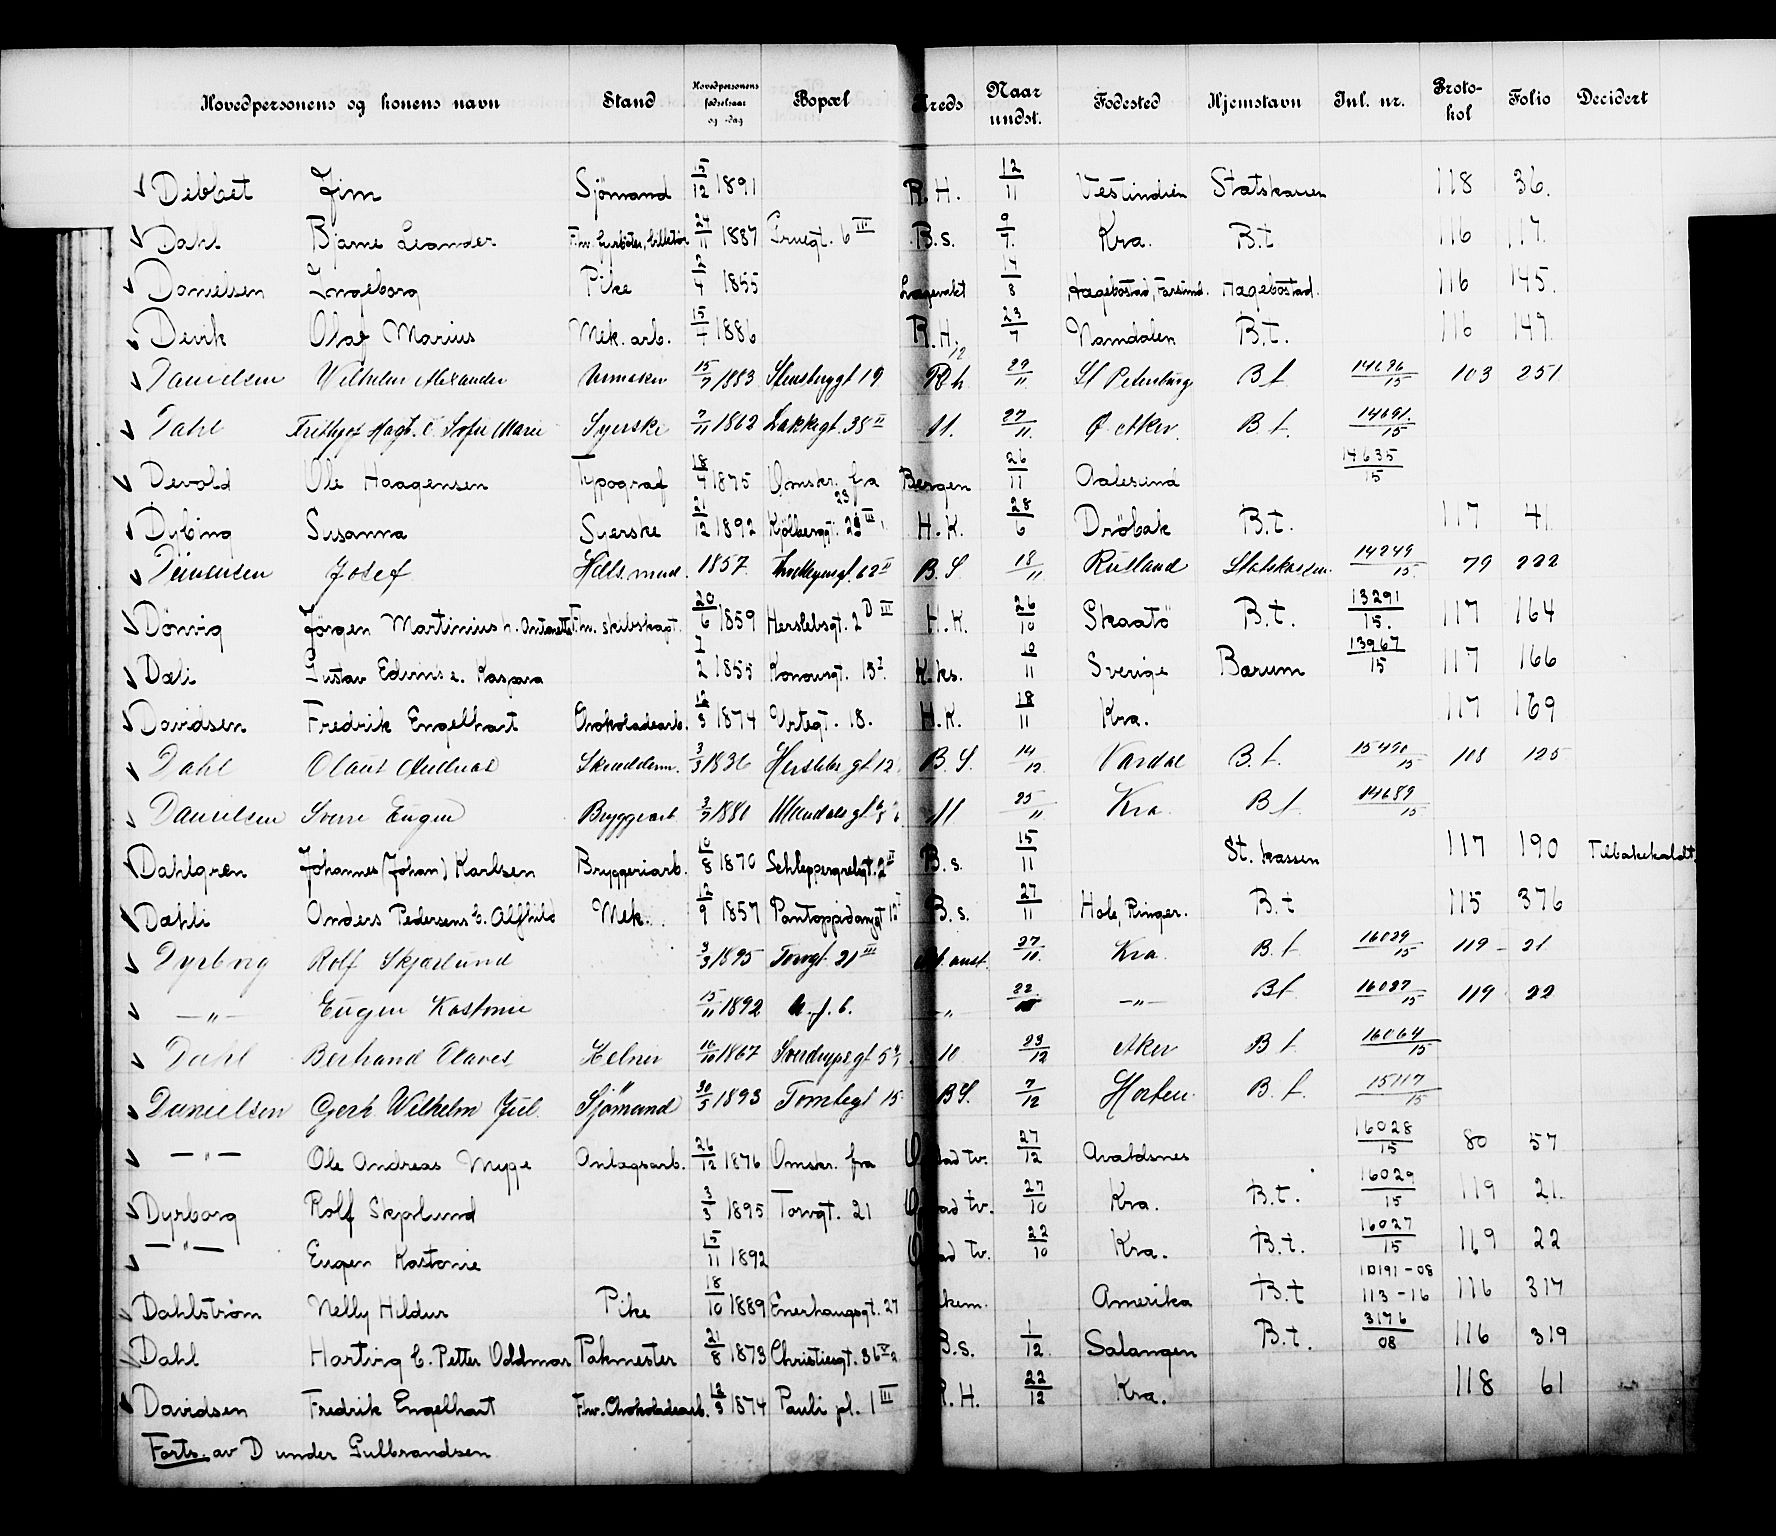 Hovedpersonens og konens navn Stand Hovedpersonens fødselsaar og -dag Bopæl Kreds Naar undst. Fødested Hjemstavn Jnl. nr. Proto-kol Folio Decidert
Debbet Jim Sjömand 15/12 1891 R. H. 12/11 Vestindien Statskassen 118 36.
Dahl Bjarne Leander 24/11 1887 6 III B. s. 9/7. Kra. B.t 116 117.
Danielsen Ingeborg Pike 2/4 1855 Lægevakt 14/8 Hægebostad, Farsund. Hægebostad. 116 145.
Devik Olaf Marius Mek. arb. 15/4 1886 R. H. 23/7 Namdalen B.t. 116 149.
Danielsen Wilhelm Alexander 15/7 1883 Stensberggt 19 R h 29/11 St Petersburg B t 14696/15 103 251
Dahl Frithjof Hagb. E. Sofie Marie Syerske 7/11 1862 Lakkegt. 38 II M. 27/11. Ø. Aker. B t. 14691./15
Devold Ole Haagensen Typograf 18/4 1875 Omskr. fra Bergen 26/11 Aalesund 14635/15
Dybing Susanna Syerske 21/12 1892 Kjölberggt. 23 III H. K. 28/6 Dröbak B.t. 117 41
Josef 1857. 62 II B. S. 18/11 Rusland Statskassen 14249/15. 79 222
Dörvig Jörgen Martinius h. Antonette F.w. skibskapt. 20/6 1859 Herslebsgt. 2 D III H. K. 26/10 Skaatö B.t. 13291/15. 117 164
Dæli Gustav Edvins e. Kaspara 1/2 1855 Konowsgt. 13 I. K.ks. 10/11 Sverige Bærum 13967/15 117 166
Davidsen Fredrik Engelhart Chokoladearb. 12/3 1874 Urtegt. 18. H. K. 18/11 Kra. 117 169
Dahl Olaus Andreas Skrædderm. 3/3 1836 Herslebs gt 12 B. S. 14/12 Vardal B. t. 15490/15 108 125
Danielsen Sverre Eugen Bryggearb 3/7 1881 M 25/11 Kra B t. 14689/15
Dahlgren Johannes (Johan) Karlsen Bryggeriarb. 10/8 1870 Schleppegrelsgt. 2 II B. s. 15/11 St. kassen 117 190 Tilbakekaldt.
Dæhli Anders Pedersens E. Alfhild Mek. 12/9 1857 Pantoppidansgt 12 I B. s. 27/11 Hole, Ringer. B.t 115 376
Dyrborg Rolf Skjærlund 3/3 1895 Torvgt. 21 III anst. 27/10. Kra. B. t 16029/15 119 - 21
— „ — Eugen Kastonie 15/11 1892 u. f. b. „ 22 — „ — B t 16027/15 119 22
Dahl Bertrand Olaves Kelner 16/10 1867 Sverdrups gt 5 10 23/12 Aker B t. 16064/15
Danielsen Gerh Wilhelm Jul. Sjömand 30/5 1893 Tomtegt 15 BS. 7/12 Horten. B. t. 15117/15
— „ — Ole Andreas Myge Anlægsarb. 26/12 1876 Omskr. fra tv. 27/12 Avaldsnes 16028/15 80 57
Dyrborg Rolf Skjærlund 3/3 1895 Torvgt. 21 tv. 27/10 Kra. B.t. 16029/15 119 21.
— „ — Eugen Kastonie 15/11 1892 tv. 22/10 Kra. B.t. 16027/15 119 22
Dahlström Nelly Hildur Pike 18/10 1889 Enerhaugsgt. 27 kem. Amerika B.t 10191-08 113-16 116 317
Dahl Hartvig E. Petter Oddmar Pakmester 21/8 1873 Christiesgt. 36 B.S. 1/12 Salangen B.t. 3176/08 116 319
Davidsen Fredrik Engelhart F.hv. Chokoladearb. 12/3 1874 Pauli pl. 1 III R. H. 22/12 Kra. 118 61
Forts. av D under Gulbrandsen